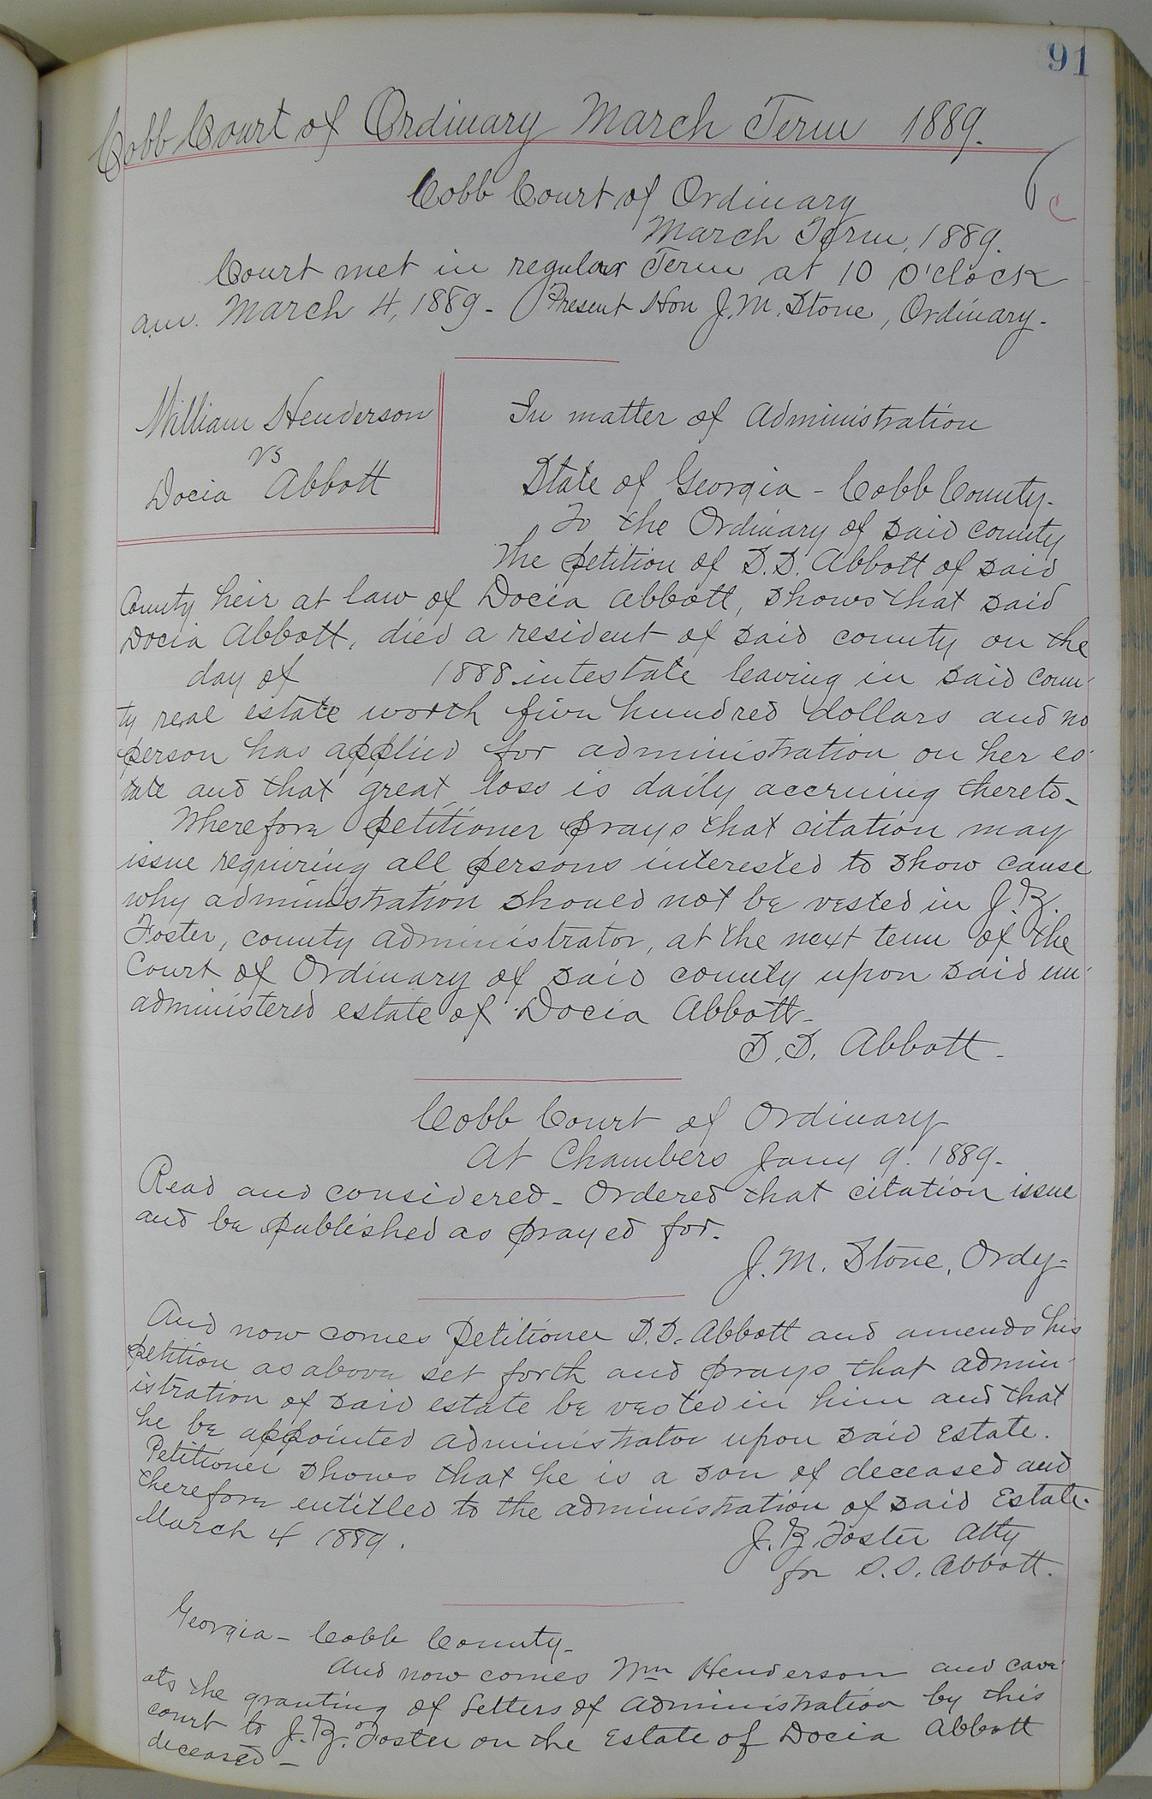 91
Cobb Court of Ordinary March Term 1889.
Cobb Court of Ordinary
March Term, 1889.
Court met in regular Term at 10 O'clock
am. March 4, 1889 - Present Hon J.M. Stone, Ordinary.
William Henderson
vs
Docia Abbott
In matter of Administration
State of Georgia - Cobb County.
To the Ordinary of said county
The petition of D.D. Abbott of said
County heir at law of Docia Abbott, shows that said
Docia Abbott, died a resident of said county on the
day of 1888. intestate leaving in said coun-
ty real estate worth five hundred dollars and no
person has applied for administration on her es-
tate and that great loss is daily accruing thereto-
Wherefore petitioner prays that citation may
issue requiring all persons interested to show cause
why administration should not be vested in J.Z.
Foster, county administrator, at the next term of the
Court of Ordinary of said county upon said un-
administered estate of Docia Abbott-
D.D. Abbott-
Cobb Court of Ordinary
At Chambers Jany 9. 1889-
Read and considered - Ordered that citation issue
and be published as prayed for.
J.M. Stone, Ordy-
And now comes Petitioner D.D. Abbott and amends his
petition as above set forth and prays that admin-
istration of said estate be vested in him and that
he be appointed administrator upon said Estate.
Petitioner shows that he is a son of deceased and
therefore entitled to the administration of said Estate.
March 4 1889.
J.Z. Foster Atty
for D.D. Abbott.
Georgia - Cobb County-
And now comes Wm Henderson and cave-
ats the granting of Letters of Administration by this
court to J.Z. Foster on the Estate of Docia Abbott
deceased-